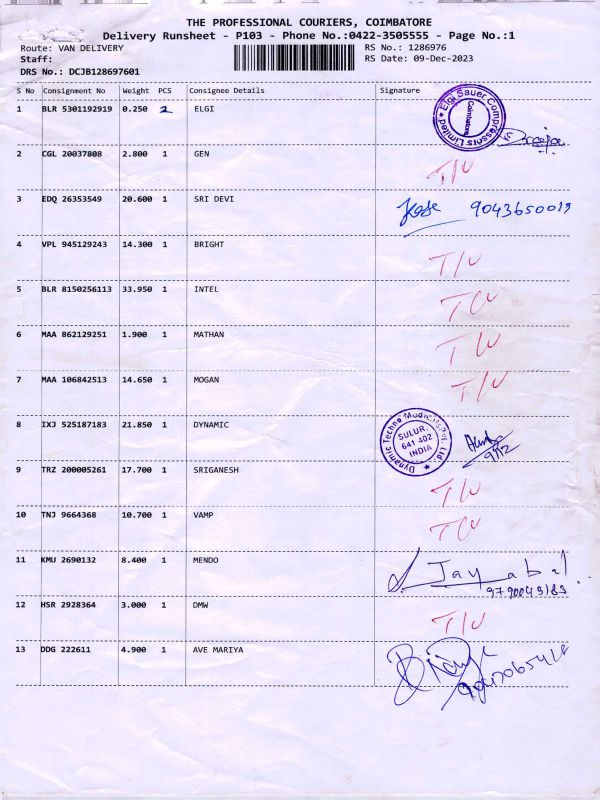 THE PROFESSIONAL COURIERS, COIMBATORE
Delivery Runsheet - P103 - Phone No.:0422-3505555 - Page No.:1
Route: VAN DELIVERY RS No.: 1286976
Staff: RS Date: 09-Dec-2023
DRS No.: DCJB128697601
S No Consignment No Weight PCS Consignee Details Signature
1 BLR 5301192919 0.250 2 ELGI
Elgi Sauer Compressors Limited
Coimbatore
2 CGL 20037808 2.800 1 GEN T/U
3 EDQ 26353549 20.600 1 SRI DEVI 9043650013
4 VPL 945129243 14.300 1 BRIGHT T/U
5 BLR 8150256113 33.950 1 INTEL T/U
6 MAA 862129251 1.900 1 MATHAN T/U
7 MAA 106842513 14.650 1 MOGAN T/U
8 IXJ 525187183 21.850 1 DYNAMIC
Dynamic Techno Medicals Pvt. Ltd.
SULUR.
641 402
INDIA
9/12
9 TRZ 200005261 17.700 1 SRIGANESH T/U
10 TNJ 9664368 10.700 1 VAMP T/U
11 KMU 2690132 8.400 1 MENDO Jayabal
9790049183
12 HSR 2928364 3.000 1 DMW T/U
13 DDG 222611 4.900 1 AVE MARIYA